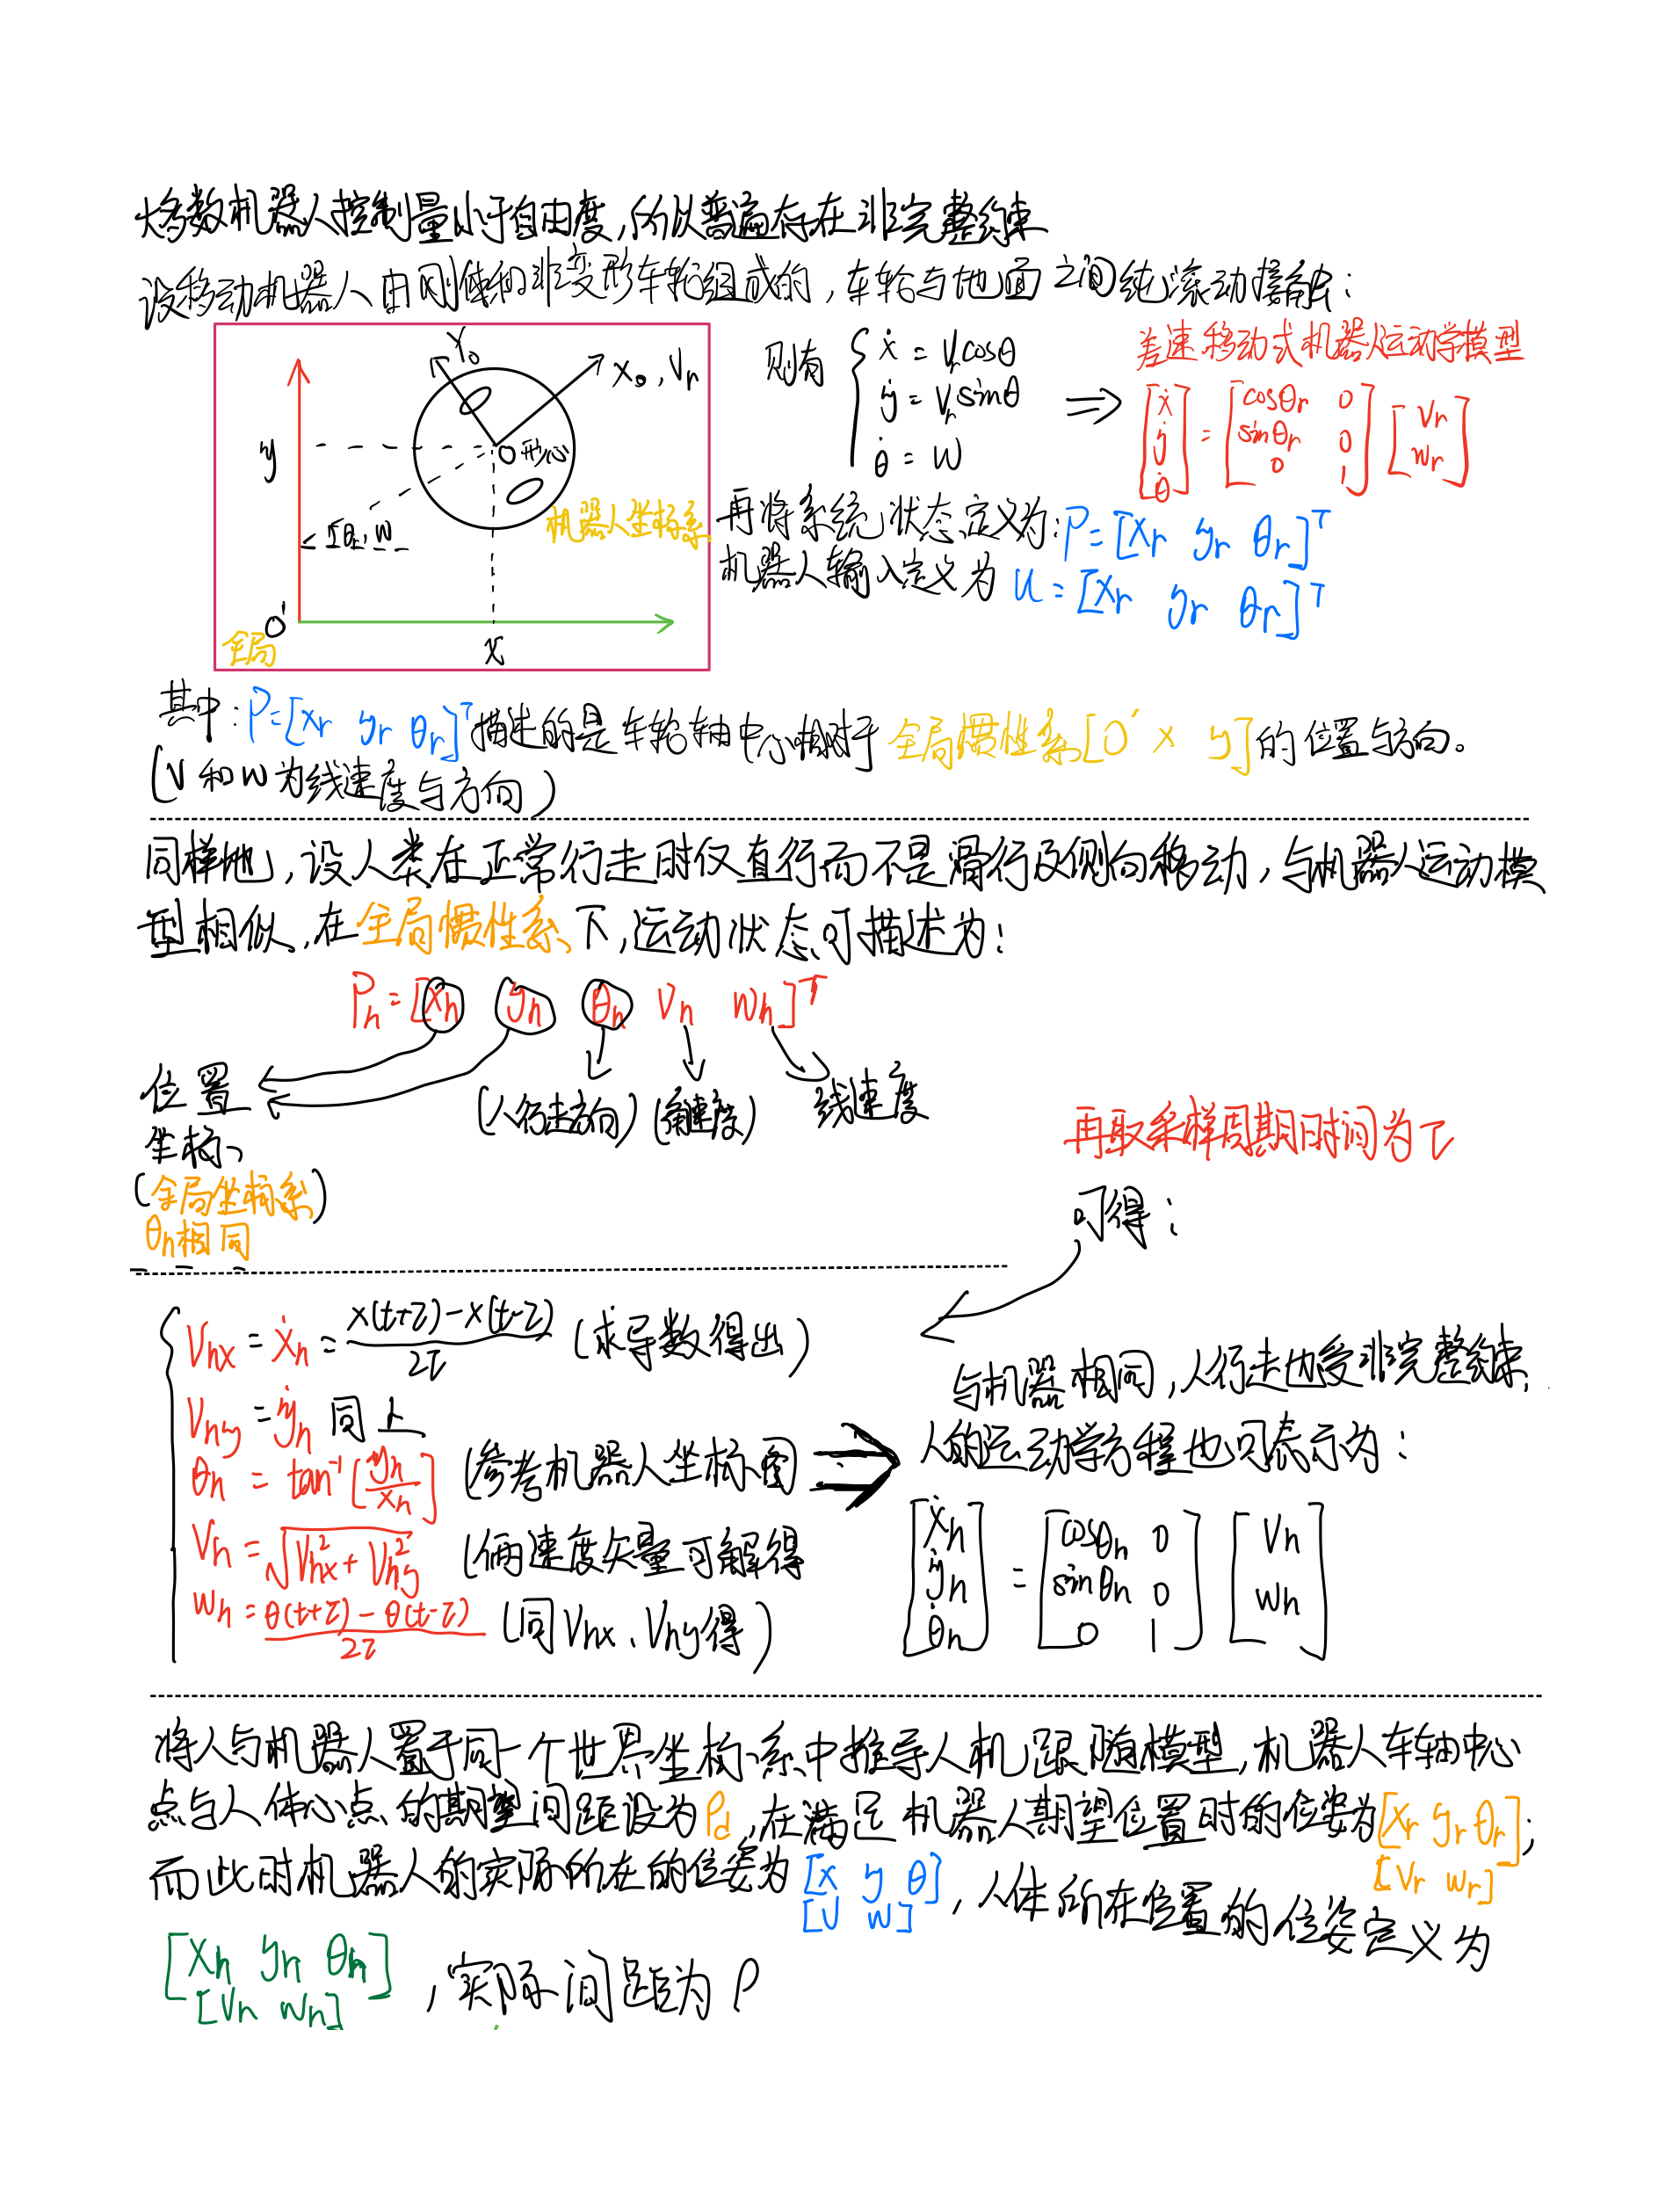 大多数机器人控制量小于自由度,所以普遍存在非完整约束
设移动机器人由刚体和非变形车轮组成的,车轮与地面之间纯滚动接触:
Y₀
X₀, Vr
y
O 形心
机器人坐标系
θ, w
O'
全局
x
则有 { ẋ = Vr cosθ
ẏ = Vr sinθ
θ̇ = w
⇒
差速移动式机器人运动学模型
[ẋ ẏ θ̇] = [cosθr 0; sinθr 0; 0 1] [Vr wr]
再将系统状态定义为: P=[Xr yr θr]ᵀ
机器人输入定义为 u=[Xr yr θr]ᵀ
其中: P=[Xr yr θr]ᵀ描述的是车轮轴中心相对于全局惯性系[O' x y]的位置与方向。
(V和w为线速度与方向)
同样地,设人类在正常行走时仅直行而不是滑行及侧向移动,与机器人运动模
型相似,在全局惯性系下,运动状态可描述为:
Ph=[Xh yh θh Vh wh]ᵀ
位置
坐标
(人行走方向) (角速度) 线速度
(全局坐标系)
θh相同
再取采样周期时间为τ
可得:
Vhx = ẋh = x(t+τ)-x(t-τ) / 2τ (求导数得出)
Vhy = ẏh 同上
θh = tan⁻¹[yh/xh] (参考机器人坐标图)
Vh = √(Vhx² + Vhy²) (俩速度矢量可解得
wh = θ(t+τ)-θ(t-τ) / 2τ (同Vhx、Vhy得)
与机器相同,人行走也受非完整约束,
人的运动学方程也可表示为:
[ẋh ẏh θ̇h] = [cosθh 0; sinθh 0; 0 1] [Vh wh]
将人与机器人置于同一个世界坐标系中推导人机跟随模型,机器人车轴中心
点与人体心点的期望间距设为ρd,在满足机器人期望位置时的位姿为[Xr yr θr];
[Vr wr]
而此时机器人的实际所在的位姿为[x y θ],人体所在位置的位姿定义为
[V w]
[Xh yh θh],实际间距为ρ
[Vh wh]